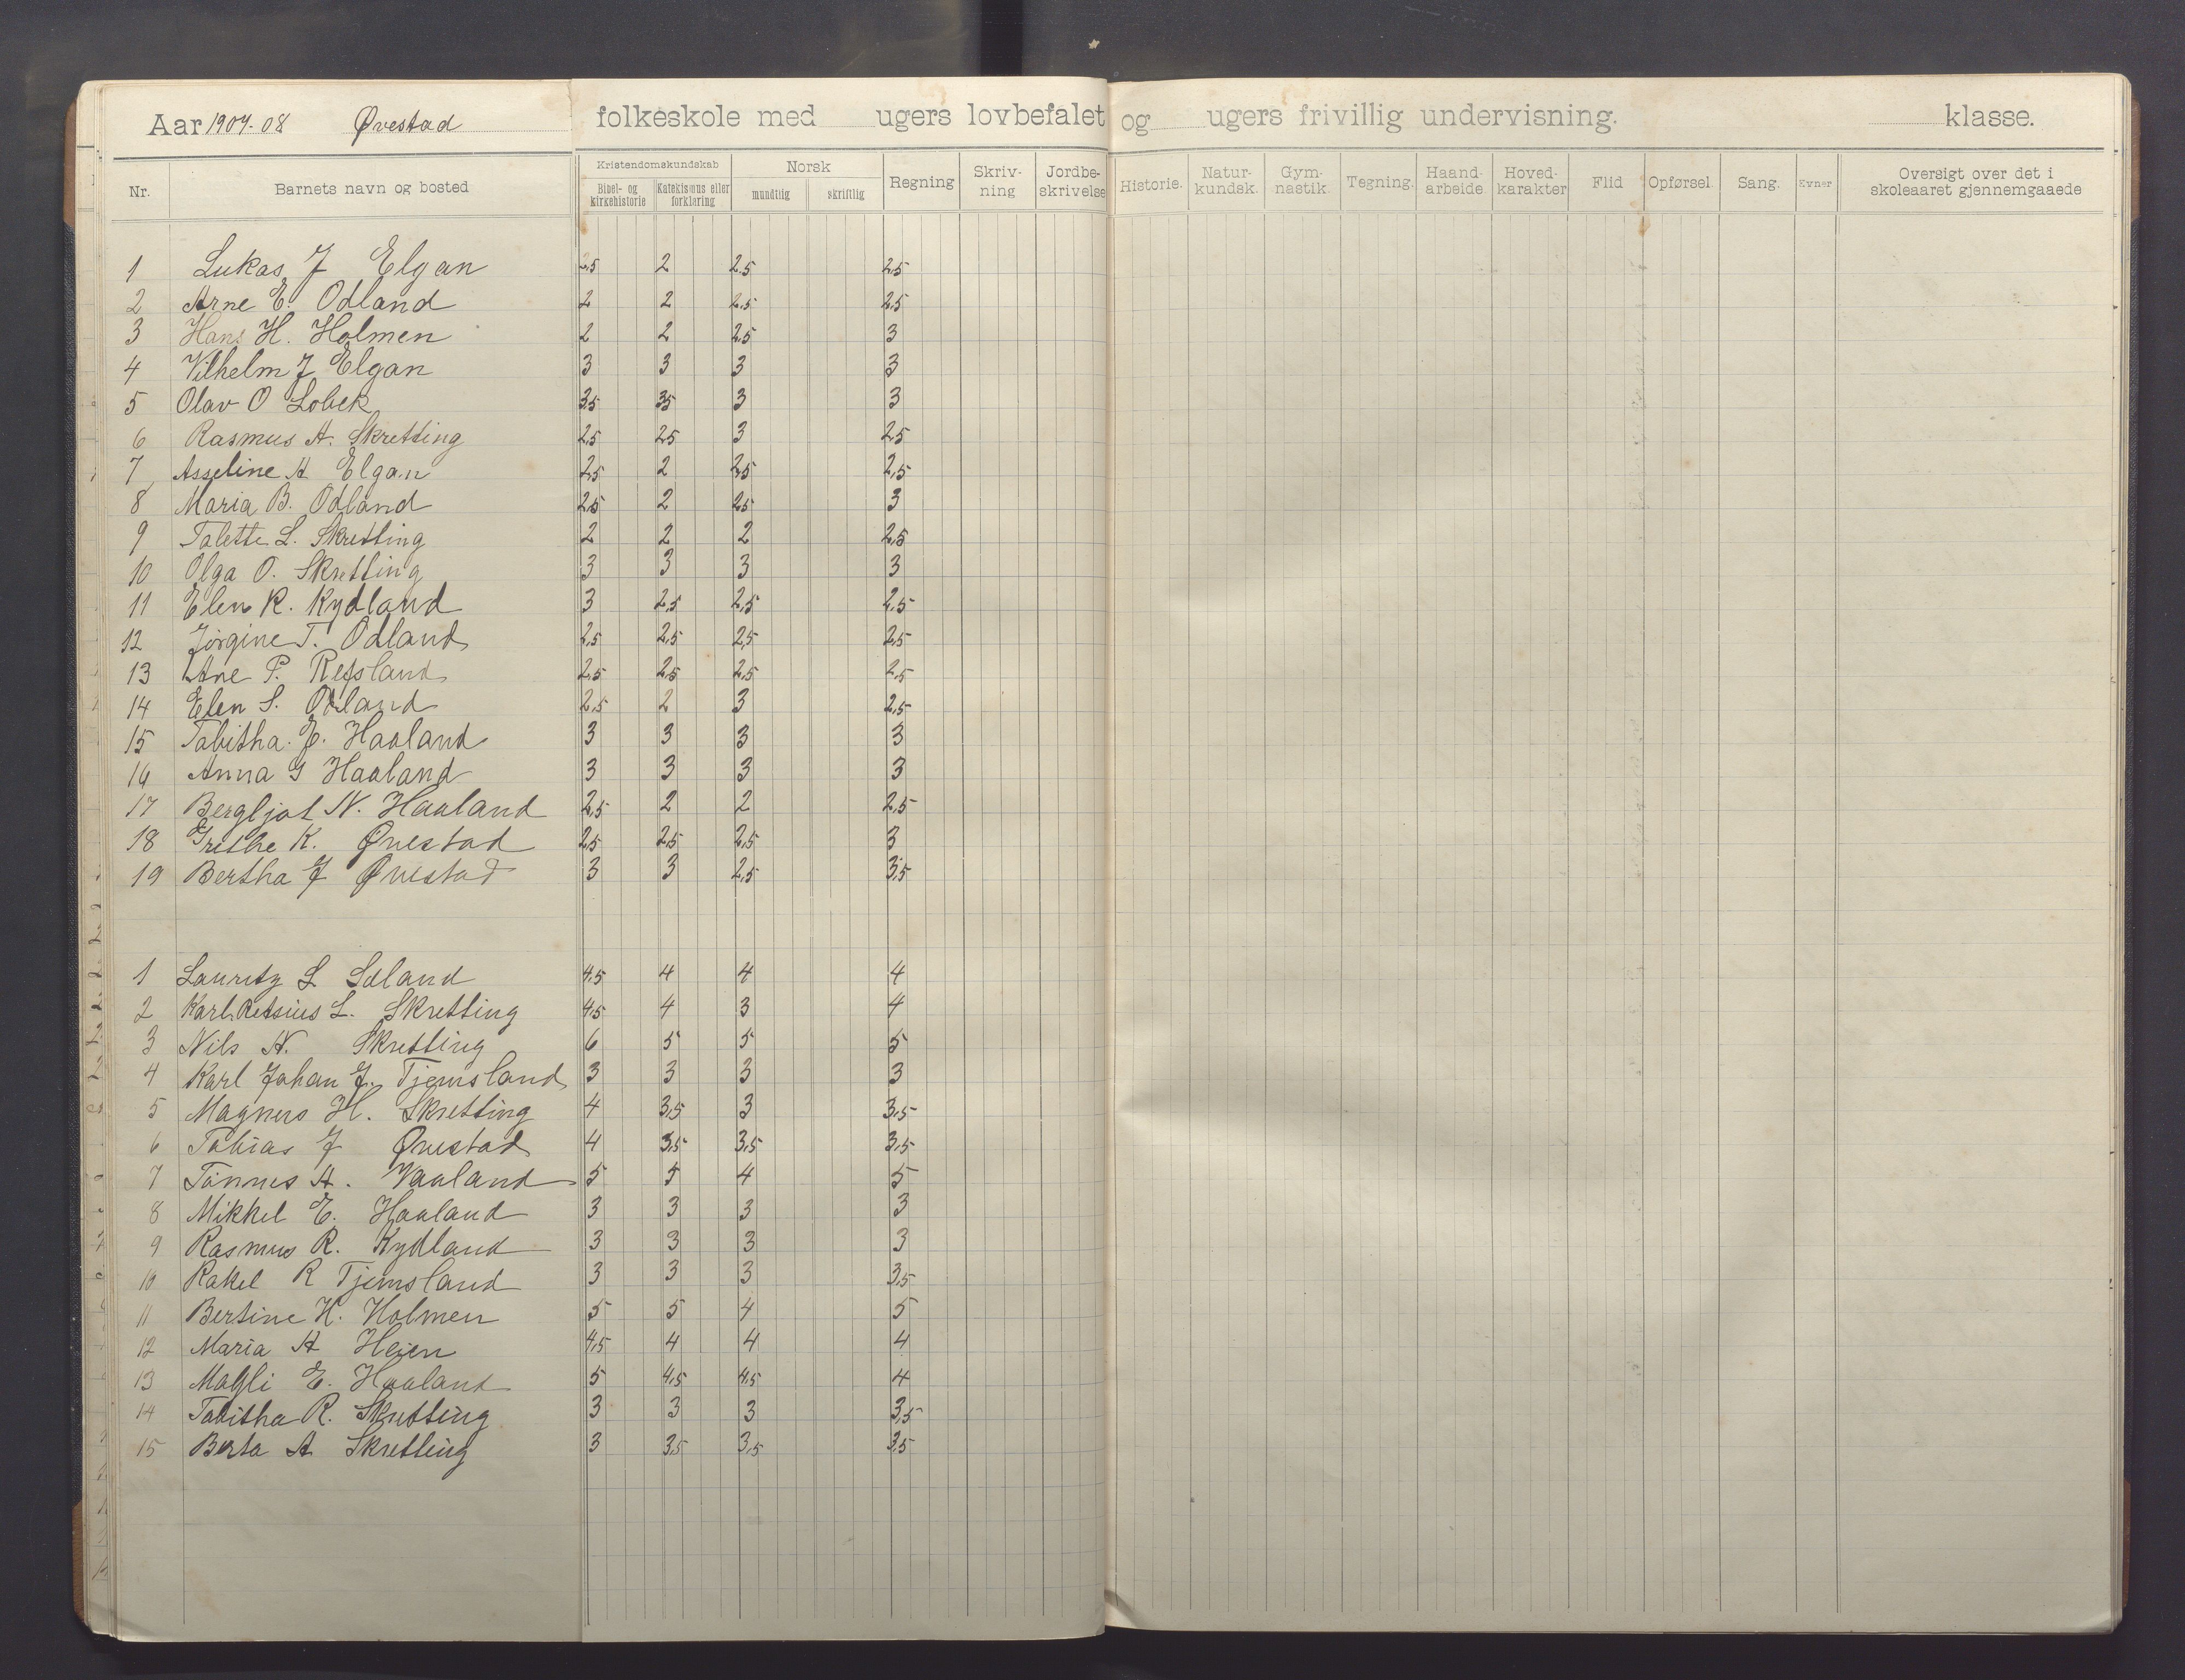 Aar 1907-08 Øvestad folkeskole med ugers lovbefalet og ugers frivillig undervisning. klasse.
Nr. Barnets navn og bosted Kristendomskundskab Bibel- og kirkehistorie Katekismus eller forklaring Norsk mundtlig skriftlig Regning Skriv-ning Jordbe-skrivelse Historie. Natur-kundsk. Gym-nastik. Tegning. Haand-arbeide. Hoved-karakter Flid Opførsel. Sang. Evner Oversigt over det i skoleaaret gjennemgaaede
1 Lukas J Elgan 2,5 2 2,5 2,5
2 Arne E. Odland 2 2 2,5 2,5
3 Hans H. Holmen 2 2 2,5 3
4 Vilhelm J Elgan 3 3 3 3
5 Olav O Lobek 3,5 35 3 3
6 Rasmus A. Skretting 2,5 25 3 2,5
7 Asseline A Elgan 2,5 2 2,5 2,5
8 Maria B. Odland 2,5 2 25 3
9 Talette L. Skretting 2 2 2 2,5
10 Olga O. Skretting 3 3 3 3
11 Elen R. Kydland 3 2,5 2,5 2,5
12 Jørgine T. Odland 2,5 2,5 2,5 2,5
13 Ane P. Refsland 2,5 2,5 2,5 2,5
14 Elen S. Odland 2,5 2 3 2,5
15 Tabitha. E. Haaland 3 3 3 3
16 Anna G Haaland 3 3 3 3
17 Bergljot N. Haaland 2,5 2 2 2,5
18 Grethe K. Øvestad 2,5 2,5 2,5 3
19 Bertha J Øvestad 3 3 2,5 3,5
1 Lauritz L Sæland 4,5 4 4 4
2 Karl Retsius L. Skretting 4,5 4 3 4
3 Nils N. Skretting 6 5 5 5
4 Karl Johan J. Tjemsland 3 3 3 3
5 Magnus H. Skretting 4 3,5 3 3,5
6 Tobias J Øvestad 4 3,5 3,5 3,5
7 Tønnes A. Vaaland 5 5 4 5
8 Mikkel E. Haaland 3 3 3 3
9 Rasmus R. Kydland 3 3 3 3
10 Rakel R Tjemsland 3 3 3 3,5
11 Bertine H. Holmen 5 5 4 5
12 Maria A Heien 4,5 4 4 4
13 Magli E. Haaland 5 4,5 4,5 4
14 Tabitha R. Skretting 3 3 3 3,5
15 Berta A Skretting 3 3,5 3,5 3,5